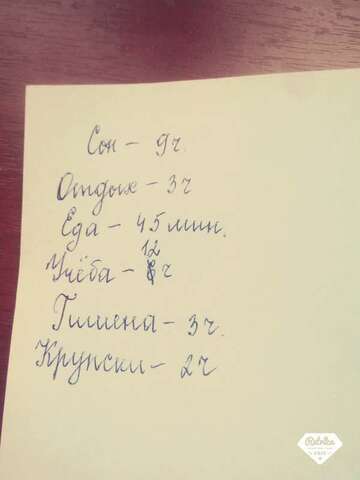 Сон – 9ч.
Отдых – 3ч
Еда – 45 мин.
Учёба – 12ч
Гигиена – 3ч.
– 2ч
Retrica